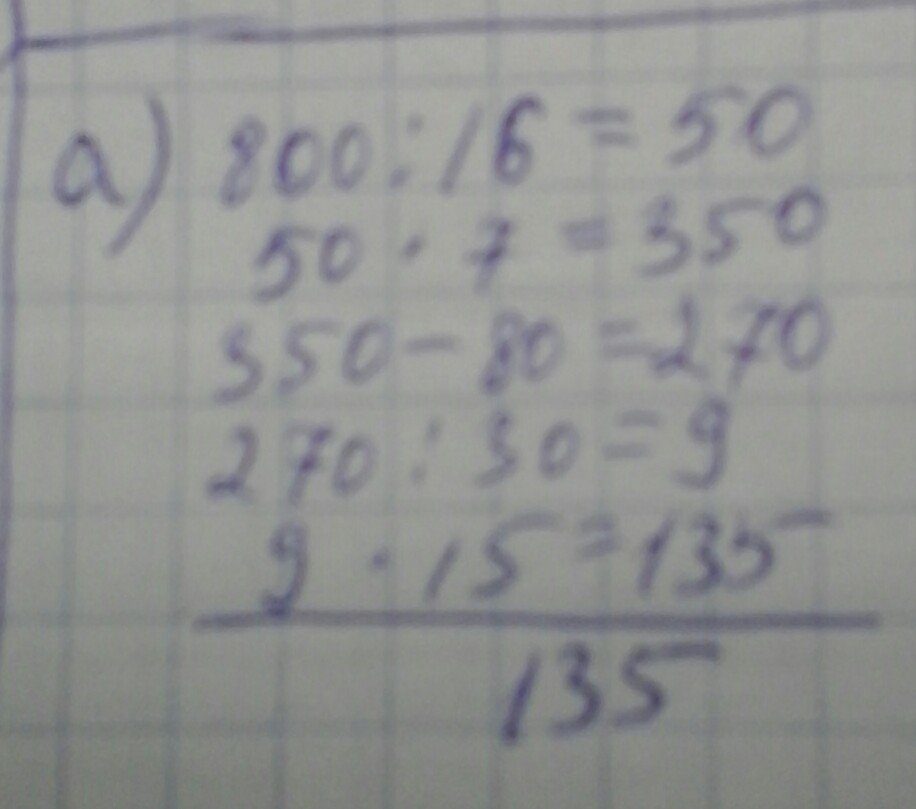 а) 800 : 16 = 50
50 · 7 = 350
350 - 80 = 270
270 : 30 = 9
9 · 15 = 135
135